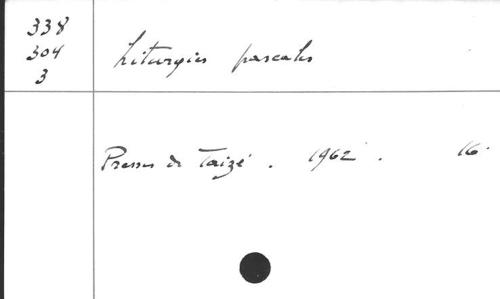 338
304
3
Liturgies pascales
Presses de Taizé. 1962. 16